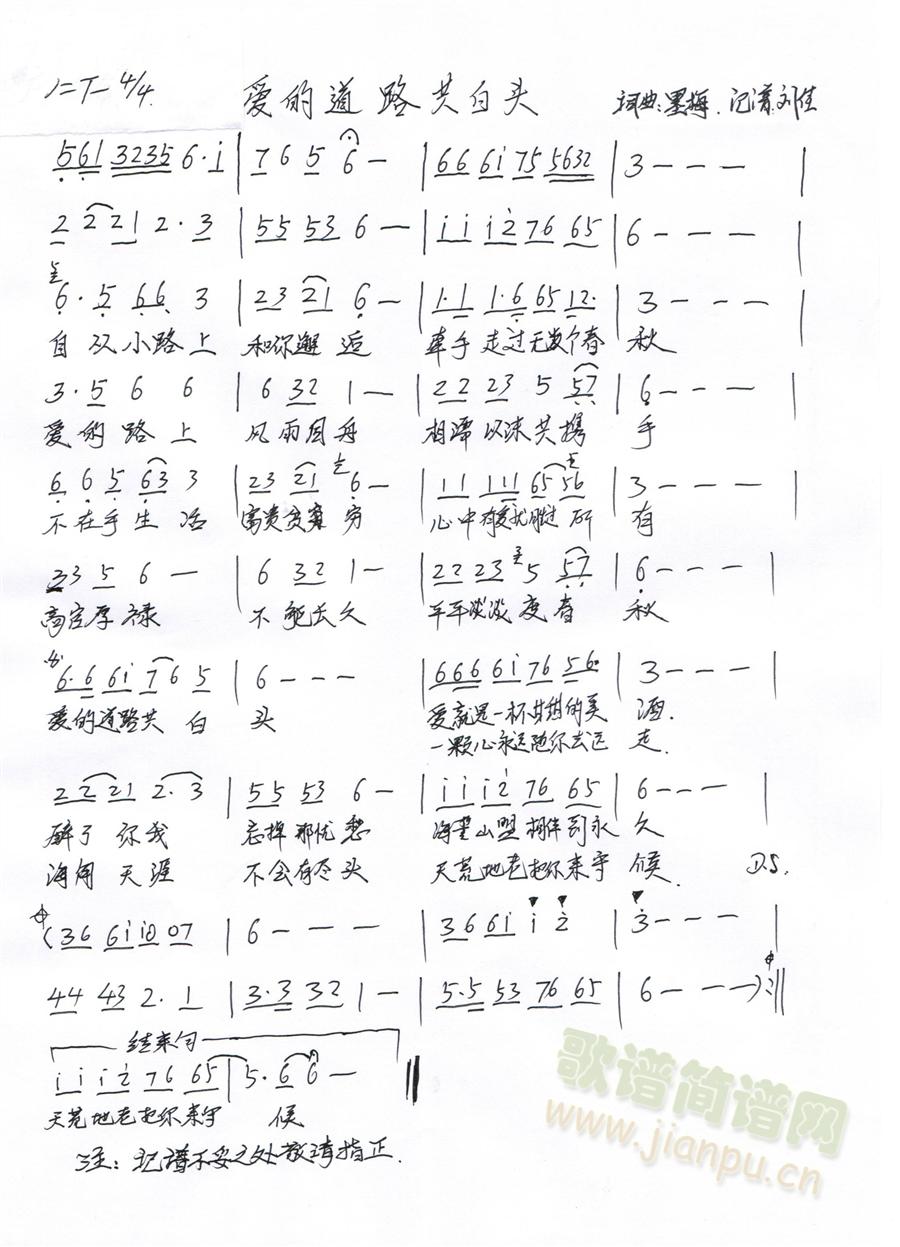 1=F 4/4 爱的道路共白头 词曲:墨梅.记谱:刘佳
561 3235 6·i | 7 6 5 6 - | 66 6i 75 5632 | 3 - - - |
2 221 2·3 | 55 53 6 - | i i i2 76 65 | 6 - - - |
6·5 66 3 | 23 21 6 - | 1·1 1·6 65 12· | 3 - - - |
自从小路上 和你邂逅 牵手走过无数个春 秋
3·5 6 6 | 6 32 1 - | 22 23 5 57 | 6 - - - |
爱的路上 风雨同舟 相濡以沫共携 手
6 6 5 63 3 | 23 21 6 - | 11 111 65 56 | 3 - - - |
不在乎生活 富贵贫穷 心中有爱 所 有
33 5 6 - | 6 32 1 - | 22 23 5 57 | 6 - - - |
高官厚禄 不能长久 平平淡淡度春 秋
6·6 6i 76 5 | 6 - - - | 666 6i 76 56 | 3 - - - |
爱的道路共白 头 爱就是一杯甘甜的美 酒.
一颗心永远随你去远 走
22 21 2·3 | 55 53 6 - | i i i2 76 65 | 6 - - - |
醉了你我 忘掉那忧愁 海誓山盟相伴到永 久
海角天涯 不会有尽头 天荒地老把你来守 候. D.S.
(36 6i i0 07 | 6 - - - | 36 6i i 2 | 3 - - - |
44 43 2·1 | 3·3 32 1 - | 5·5 53 76 65 | 6 - - - ) :||
结束句
i i i2 76 65 | 5·6 6 - ||
天荒地老把你来守 候
注:记谱不妥之处敬请指正.
歌谱简谱网
www.jianpu.cn